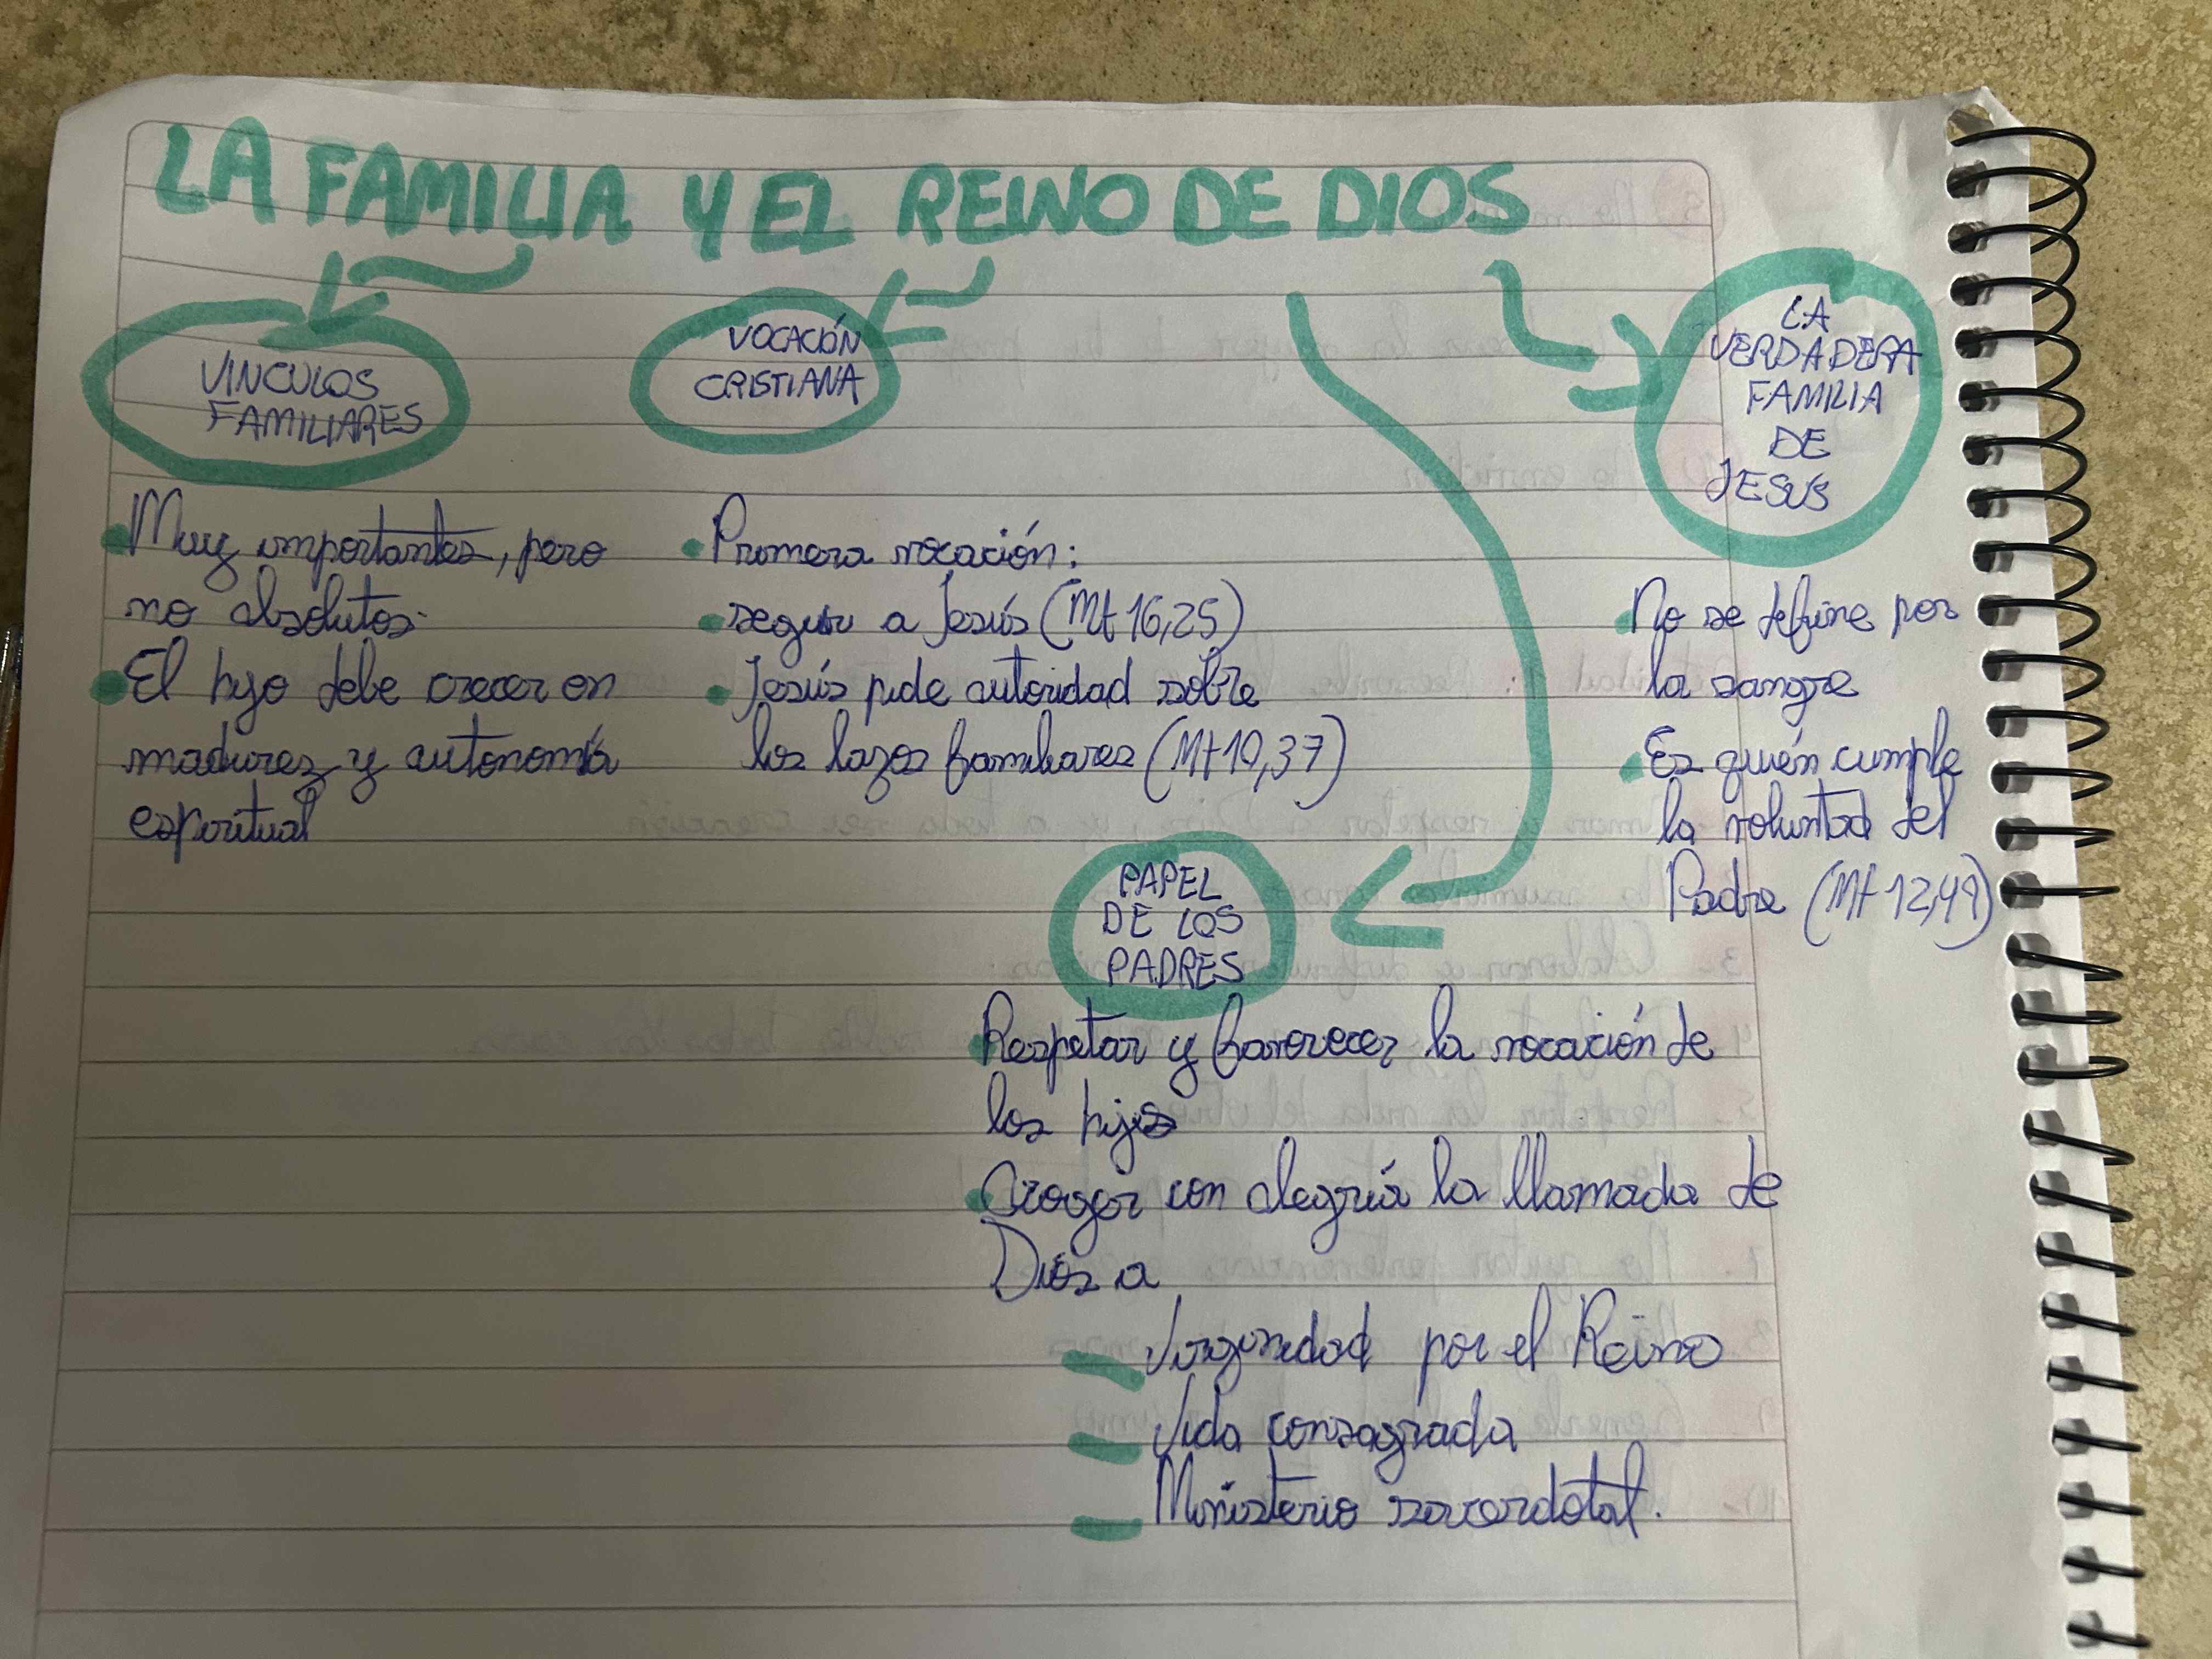 LA FAMILIA Y EL REINO DE DIOS
VINCULOS
FAMILIARES
Muy importantes, pero
no absolutos.
El hijo debe crecer en
madurez y autonomía
espiritual
VOCACIÓN
CRISTIANA
Primera vocación:
seguir a Jesús (Mt 16,25)
Jesús pide autoridad sobre
los lazos familiares (Mt 10,37)
PAPEL
DE LOS
PADRES
Respetar y favorecer la vocación de
los hijos
Acoger con alegría la llamada de
Dios a
Virginidad por el Reino
Vida consagrada
Ministerio sacerdotal.
LA
VERDADERA
FAMILIA
DE
JESUS
No se define por
la sangre
Es quién cumple
la voluntad del
Padre (Mt 12,49)